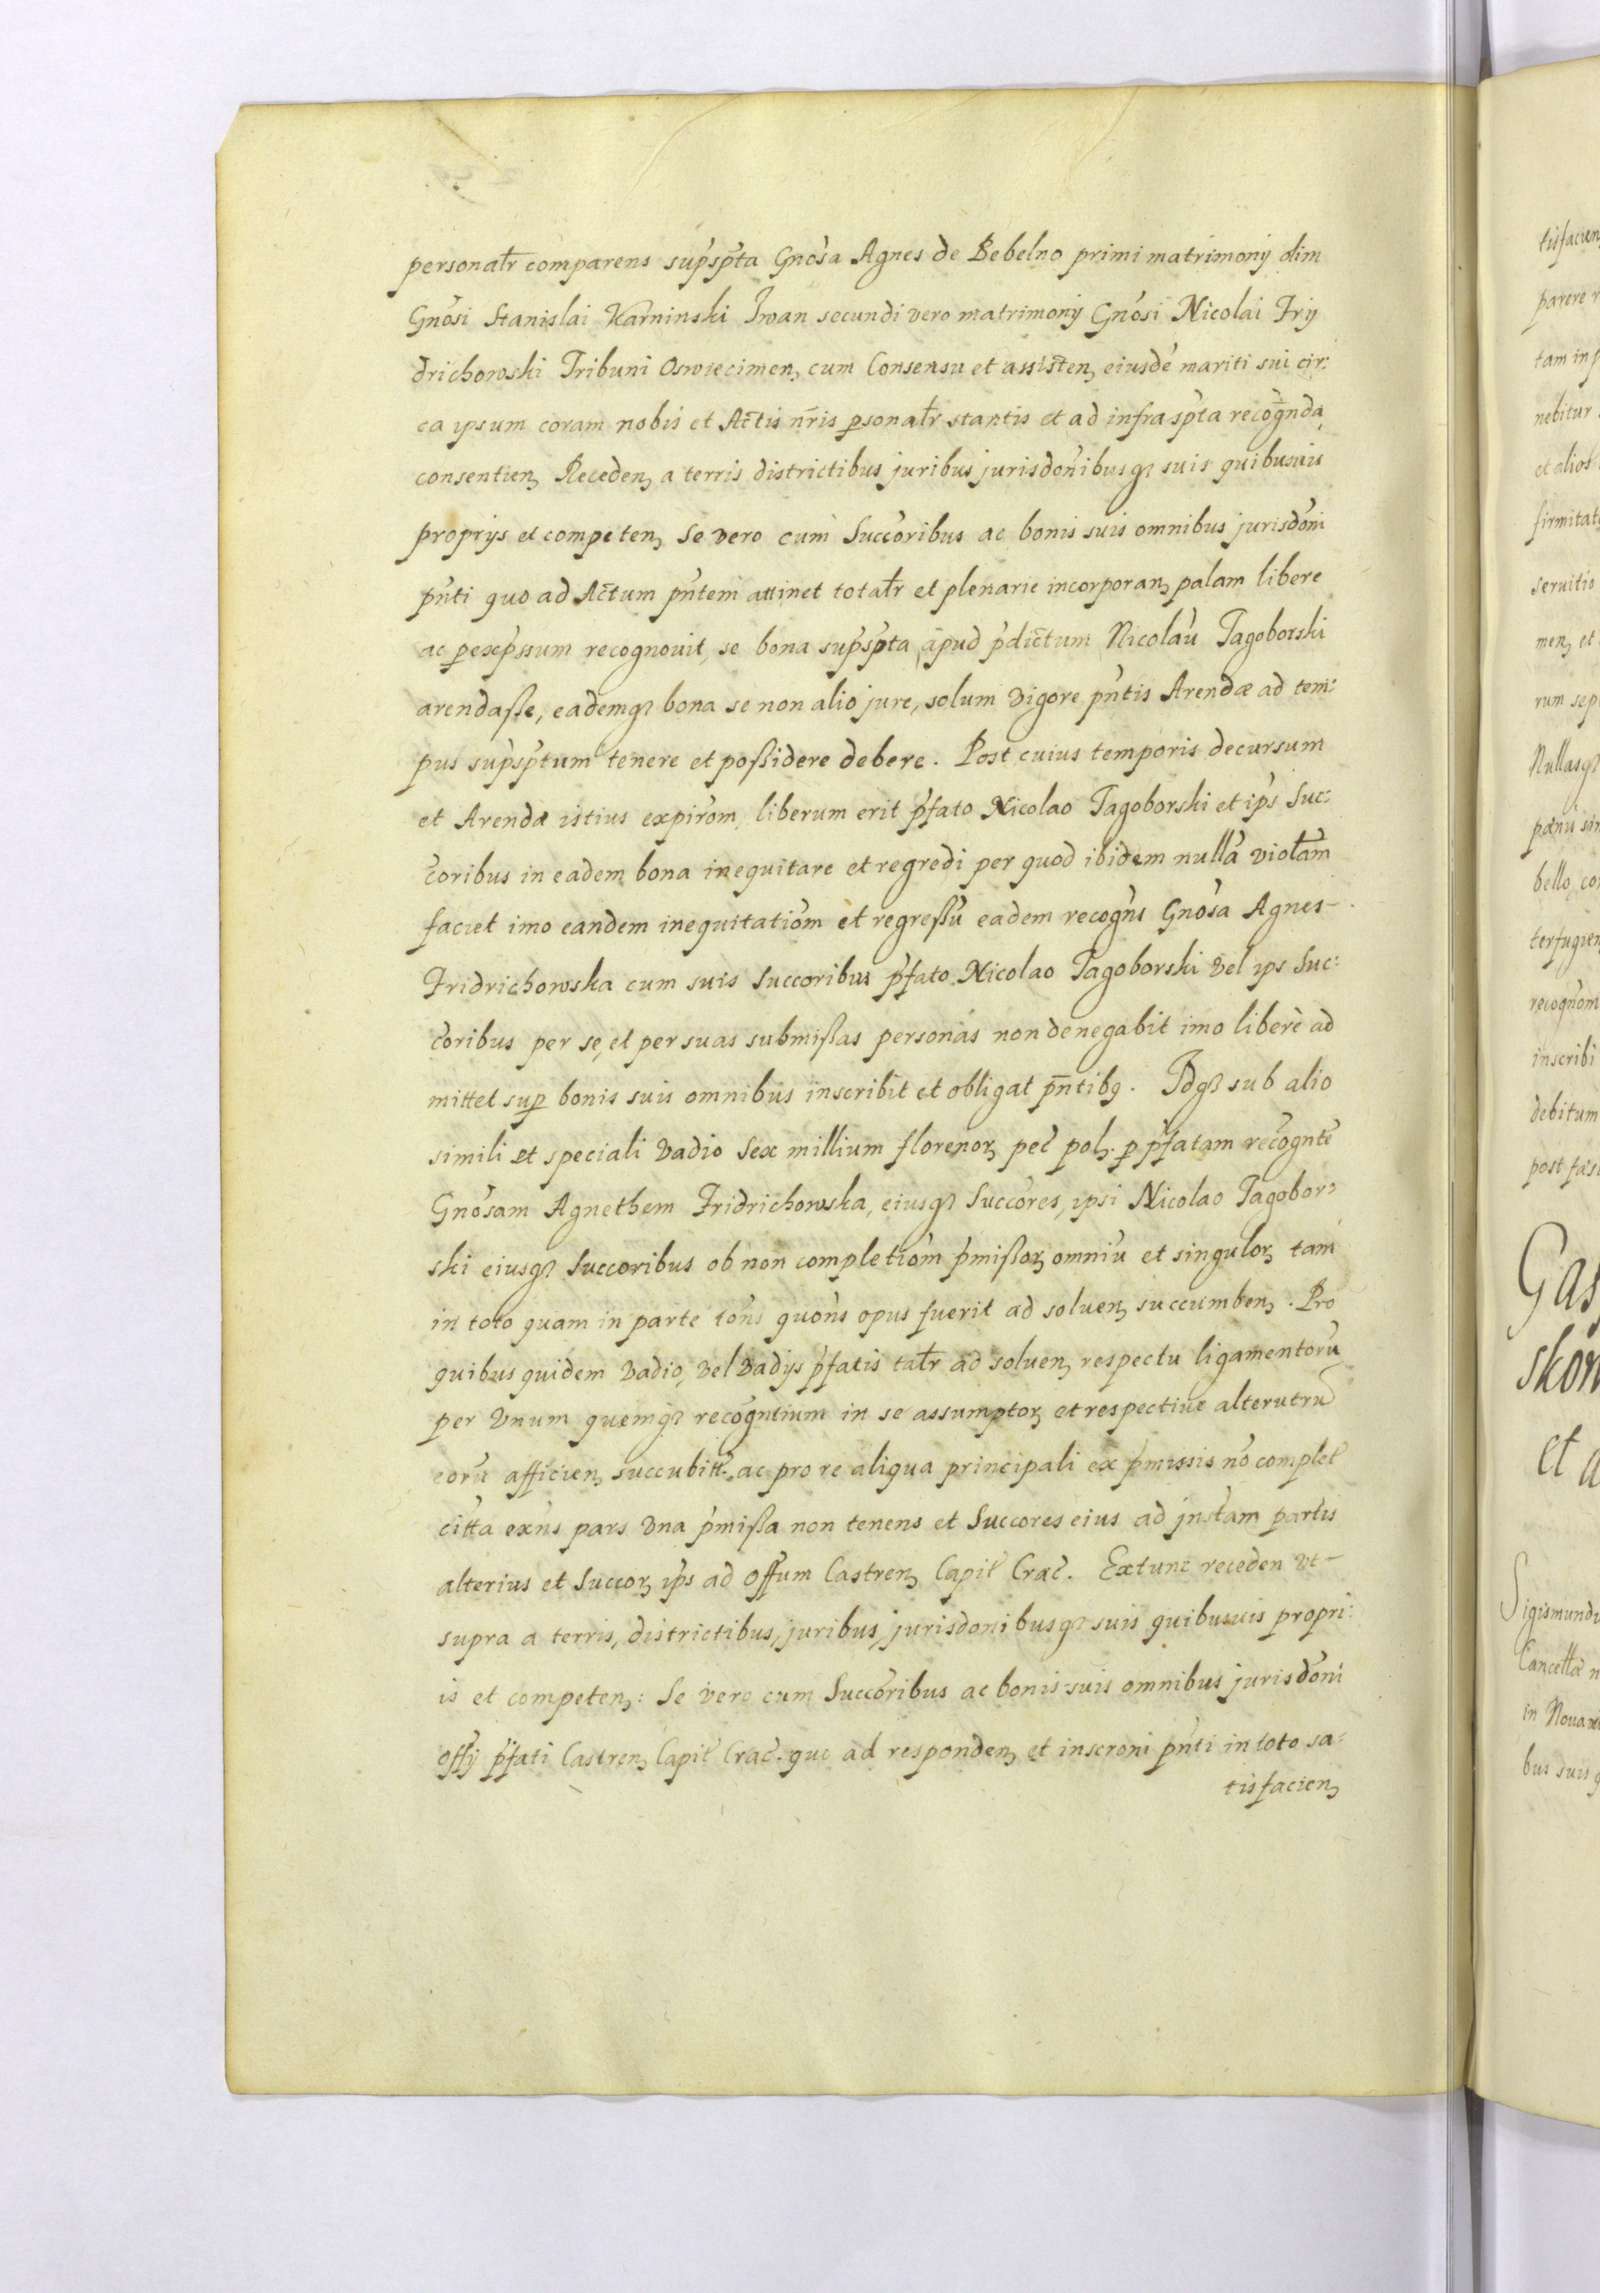 personalr comparens supspta Gnosa Agnes de Bebelno primi matrimonij olim
Gnosi Stanislai Karninski Iwan secundi vero matrimonij Gnosi Nicolai Fry
drichowski Tribuni Oswiecimen, cum Consensu et assisten, eiusde mariti sui cir:
ca ipsum coram nobis et Actis nris psonalr stantis et ad infraspta recognda
consentien, Receden, a terris districtibus juribus jurisdonibusq3 suis quibusuis
proprijs et competen, Se vero cum Succoribus ac bonis suis omnibus jurisdoni
pnti quo ad Actum pntem attinet totalr et plenarie incorporan, palam libere
ac pexpssum recognouit, se bona supspta apud pdictum Nicolau Tagoborski
arendasse, eademq3 bona se non alio jure, solum vigore pntis Arendæ ad tem:
pus supsptum tenere et possidere debere. Post cuius temporis decursum
et Arendæ istius expirom, liberum erit pfato Nicolao Tagoborski et ips Suc:
coribus in eadem bona inequitare et regredi per quod ibidem nulla violam
faciet imo eandem inequitatiom et regressu eadem recogns Gnosa Agnes
Fridrichowska cum suis Succoribus pfato Nicolao Tagoborski vel ips Suc:
coribus per se, et per suas submissas personas non denegabit imo liberè ad
mittet sup bonis suis omnibus inscribit et obligat pntibq. Idq3 sub alio
simili et speciali vadio Sex millium florenor, pec pol, p pfatam recognte
Gnosam Agnethem Fridrichowska, eiusq3 Succores, ipsi Nicolao Tagobor=
ski eiusq3 Succoribus ob non completiom pmissor, omniu et singulor, tam
in toto quam in parte tons quons opus fuerit ad soluen, succumben,. Pro
quibus quidem vadio, vel vadijs pfatis talr ad soluen, respectu ligamentoru
per vnum quemq3 recogntium in se assumptor, et respectiue alterutru
eoru afficien, succubitt. ac pro re aliqua principali ex pmissis no complet
citta exns pars vna pmissa non tenens et Succores eius ad jnstam partis
alterius et Succor, ips ad Offum Castren, Capit Crac. Extunc receden vt
supra a terris, districtibus, juribus, jurisdonibusq3 suis quibusuis propri:
is et competen,: Se vero cum Succoribus ac bonis suis omnibus jurisdoni
offij pfati Castren, Capit Crac. quo ad responden, et inscroni pnti in toto sa:
tisfacien,